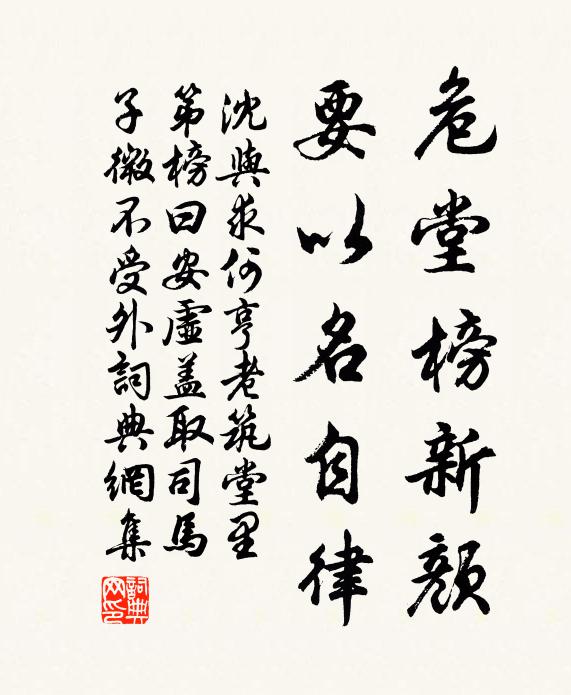 危堂榜新顏
要以名自律
沈與求何亨老筑堂里
第榜曰安虛蓋取司馬
子微不受外詞典網集
詞典網印